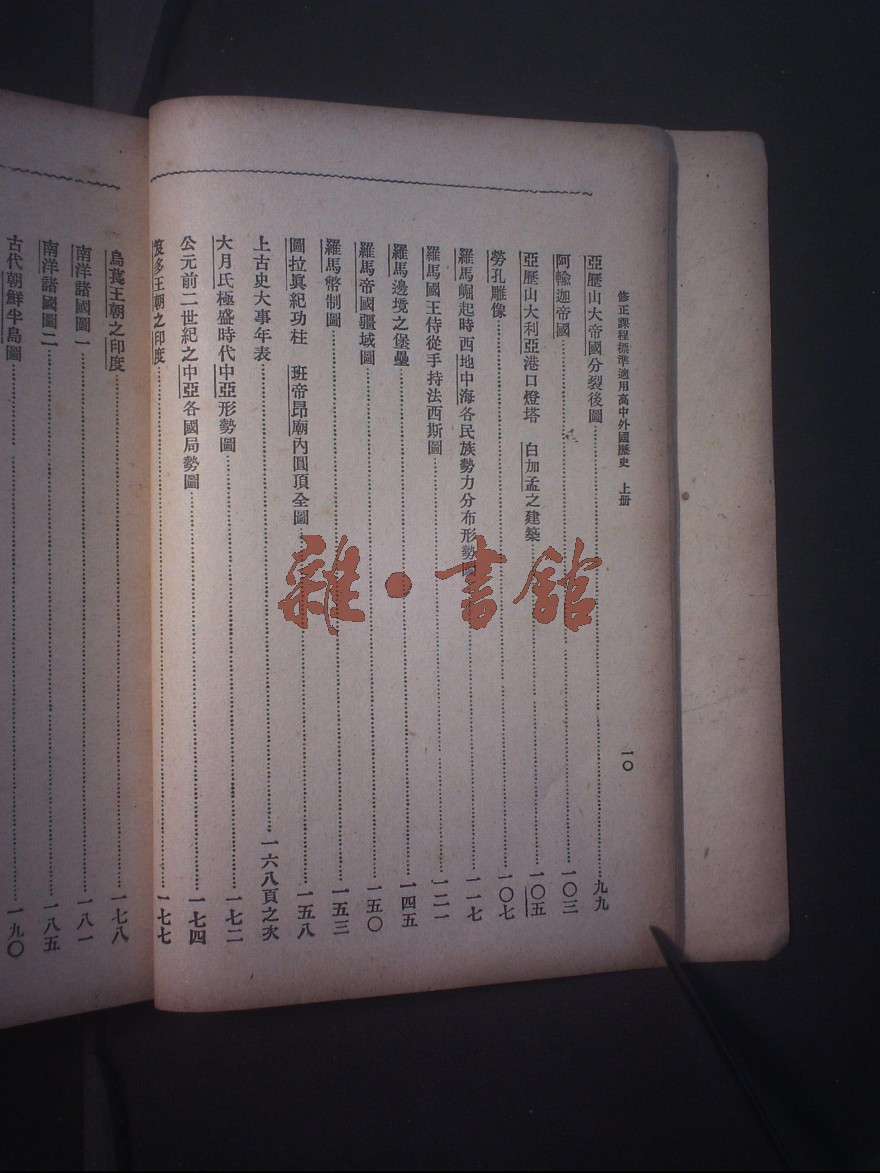 修正課程標準適用高中外國歷史 上册
一〇
亞歷山大帝國分裂後圖……九九
阿輸迦帝國……一〇三
亞歷山大利亞港口燈塔 白加孟之建築……一〇五
勞孔雕像……一〇七
羅馬崛起時西地中海各民族勢力分布形勢圖……一一七
羅馬國王侍從手持法西斯圖……一二一
羅馬邊境之堡壘……一四五
羅馬帝國疆域圖……一五〇
羅馬幣制圖……一五三
圖拉眞紀功柱 班帝昂廟內圓頂全圖……一五八
上古史大事年表……一六八頁之次
大月氏極盛時代中亞形勢圖……一七二
公元前二世紀之中亞各國局勢圖……一七四
笈多王朝之印度……一七七
烏萇王朝之印度……一七八
南洋諸國圖一……一八一
南洋諸國圖二……一八五
古代朝鮮半島圖……一九〇
雜·書館